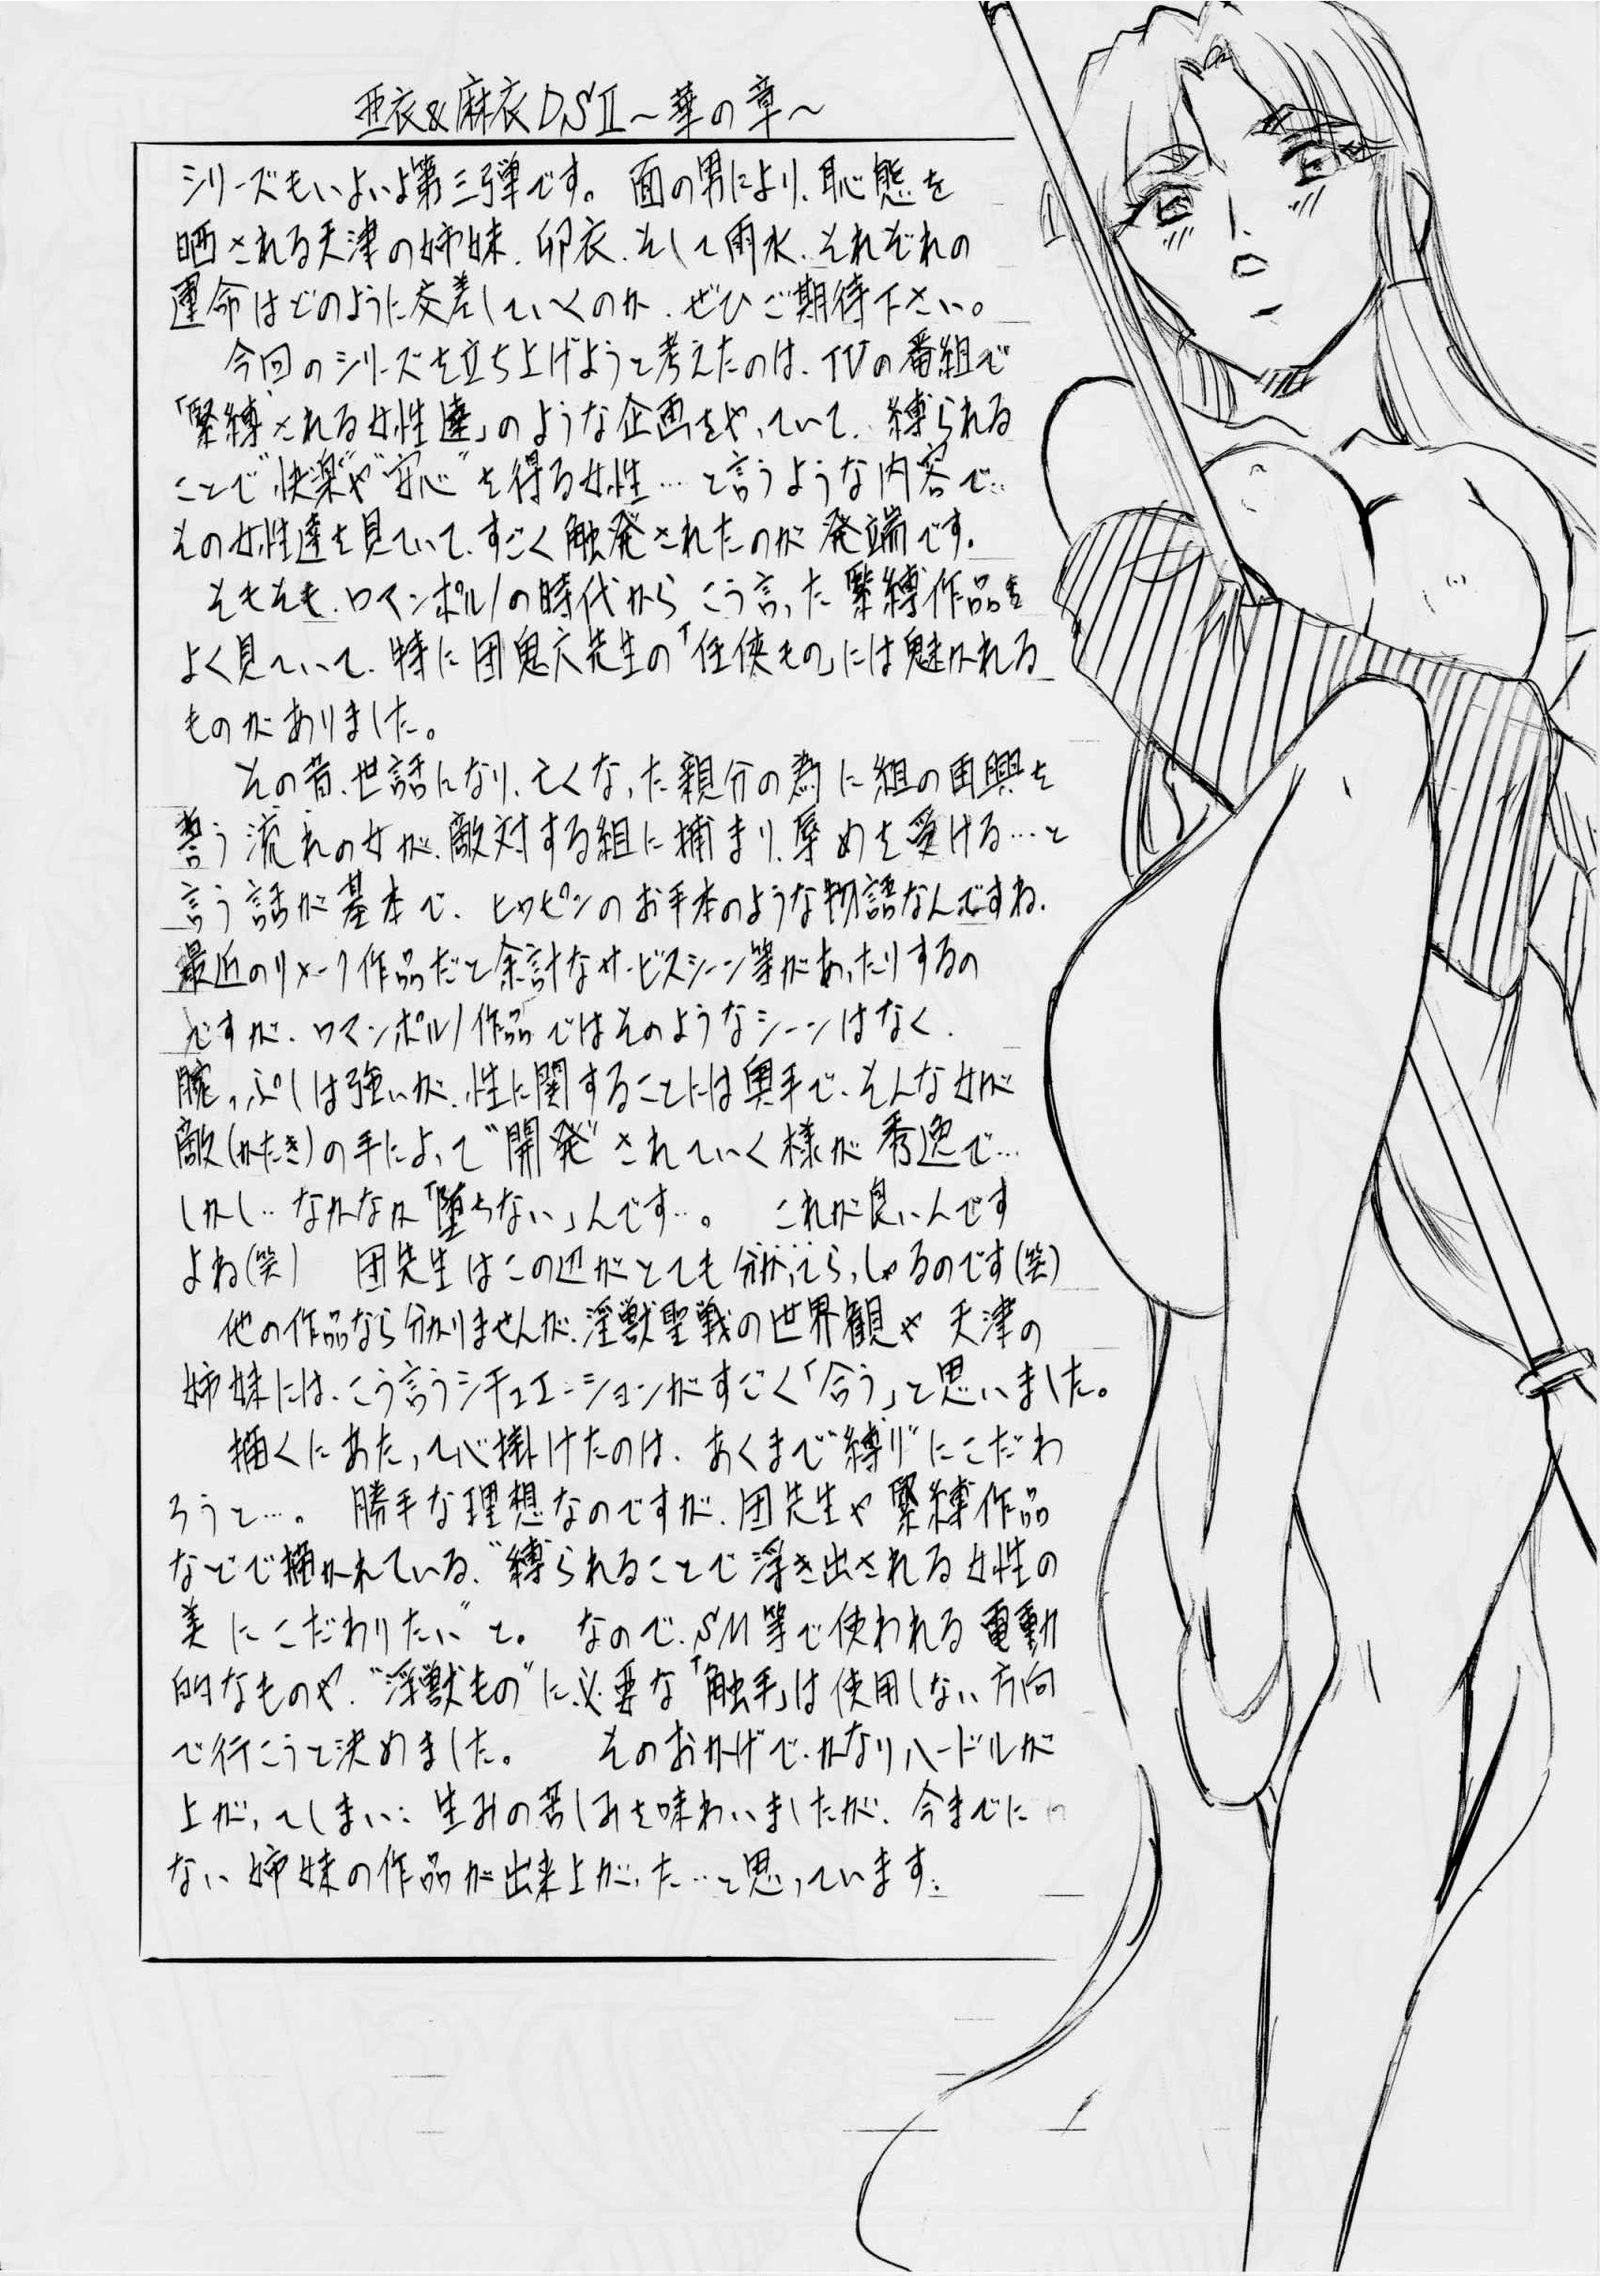 亜衣&麻衣DSⅡ～華の章～
シリーズもいよいよ第三弾です。 面の男により、恥態を
晒される天津の姉妹、卯衣、そして雨水、それぞれの
運命はどのように交差していくのか、ぜひご期待下さい。
今回のシリーズを立ち上げようと考えたのは、TVの番組で
「緊縛される女性達」のような企画をやっていて、縛られる
ことで"快楽"や"安心"を得る女性…と言うような内容で…
その女性達を見ていて、すごく触発されたのが発端です。
そもそも、ロマンポルノの時代からこう言った緊縛作品を
よく見ていて、特に団鬼六先生の「任侠もの」には魅かれる
ものがありました。
その昔、世話になり、亡くなった親分の為に組の再興を
誓う流れの女が、敵対する組に捕まり、辱めを受ける…と
言う話が基本で、ヒロピンのお手本のような物語なんですね、
最近のリメーク作品だと余計なサービスシーン等があったりするの
ですが、ロマンポルノ作品ではそのようなシーンはなく、
腕っぷしは強いが、性に関することには奥手で、そんな女が
敵(かたき)の手によって"開発"されていく様が秀逸で…
しかし…なかなか「堕ちない」んです…。 これが良いんです
よね(笑) 団先生はこの辺がとても分かってらっしゃるのです(笑)
他の作品なら分かりませんが、淫獣聖戦の世界観や天津の
姉妹には、こう言うシチュエーションがすごく「合う」と思いました。
描くにあたって心掛けたのは、あくまで"縛り"にこだわ
ろうと…。 勝手な理想なのですが、団先生や緊縛作品
などで描かれている、"縛られることで浮き出される女性の
美にこだわりたい"と。 なので、SM等で使われる電動
的なものや、"淫獣もの"に必要な「触手」は使用しない方向
で行こうと決めました。 そのおかげで、かなりハードルが
上がってしまい… 生みの苦しみを味わいましたが、今までに
ない姉妹の作品が出来上がった…と思っています。